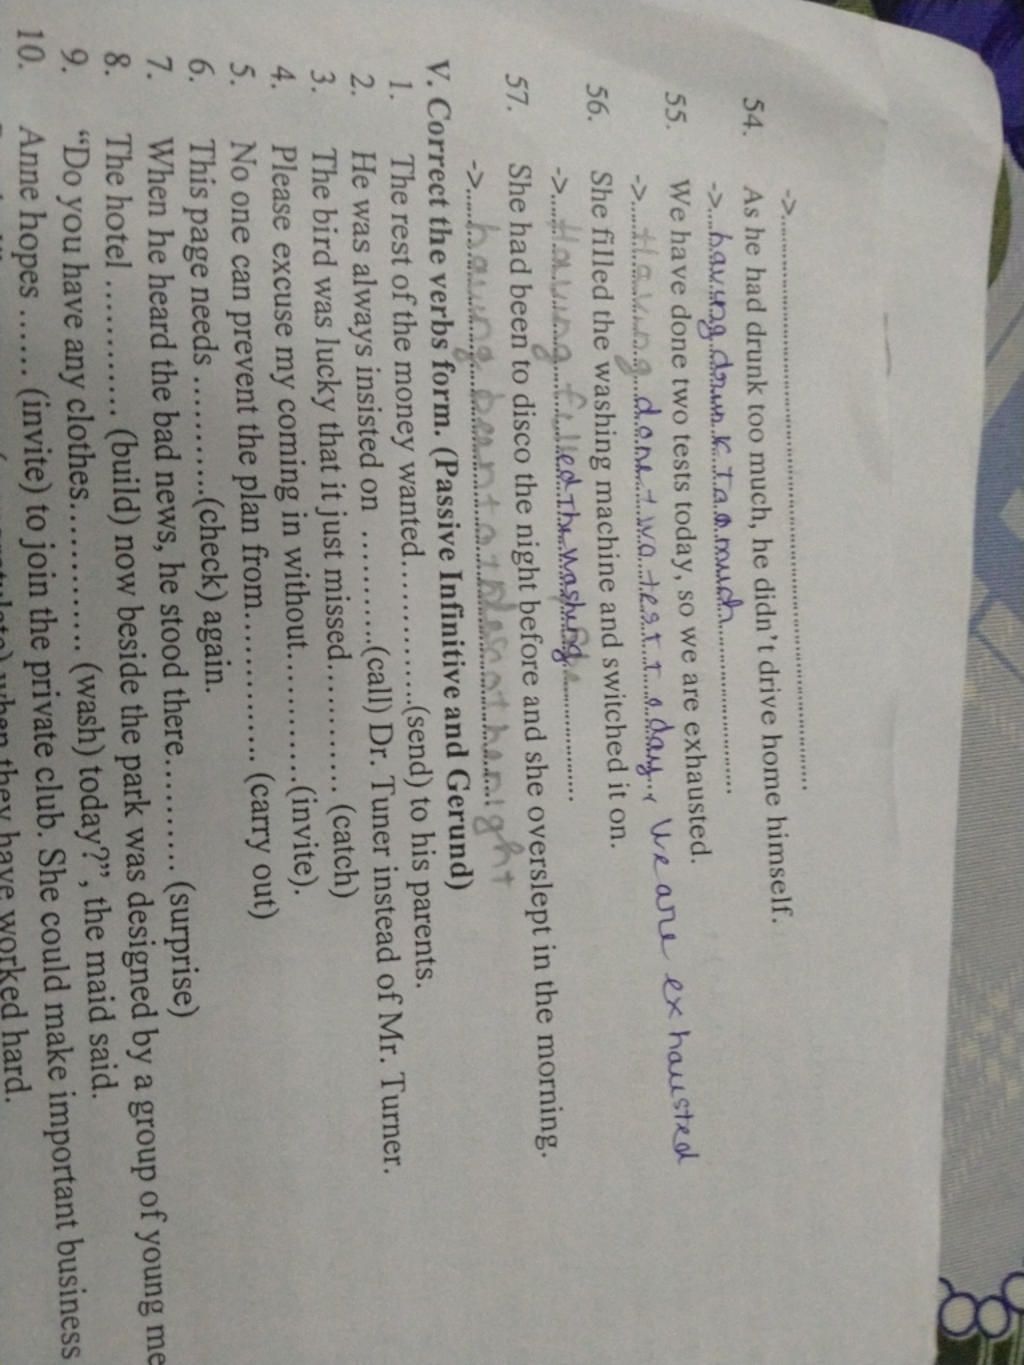 ->
54. As he had drunk too much, he didn't drive home himself.
->.....having drunk Too much
55. We have done two tests today, so we are exhausted.
->.....Having done two test today, we are exhausted
56. She filled the washing machine and switched it on.
->.....Having filled The washing
57. She had been to disco the night before and she overslept in the morning.
->.....having night
V. Correct the verbs form. (Passive Infinitive and Gerund)
1. The rest of the money wanted..............(send) to his parents.
2. He was always insisted on ............(call) Dr. Tuner instead of Mr. Turner.
3. The bird was lucky that it just missed............. (catch)
4. Please excuse my coming in without..............(invite).
5. No one can prevent the plan from.............. (carry out)
6. This page needs ............(check) again.
7. When he heard the bad news, he stood there........... (surprise)
8. The hotel ............ (build) now beside the park was designed by a group of young me
9. “Do you have any clothes............... (wash) today?”, the maid said.
10. Anne hopes ...... (invite) to join the private club. She could make important business
when they have worked hard.